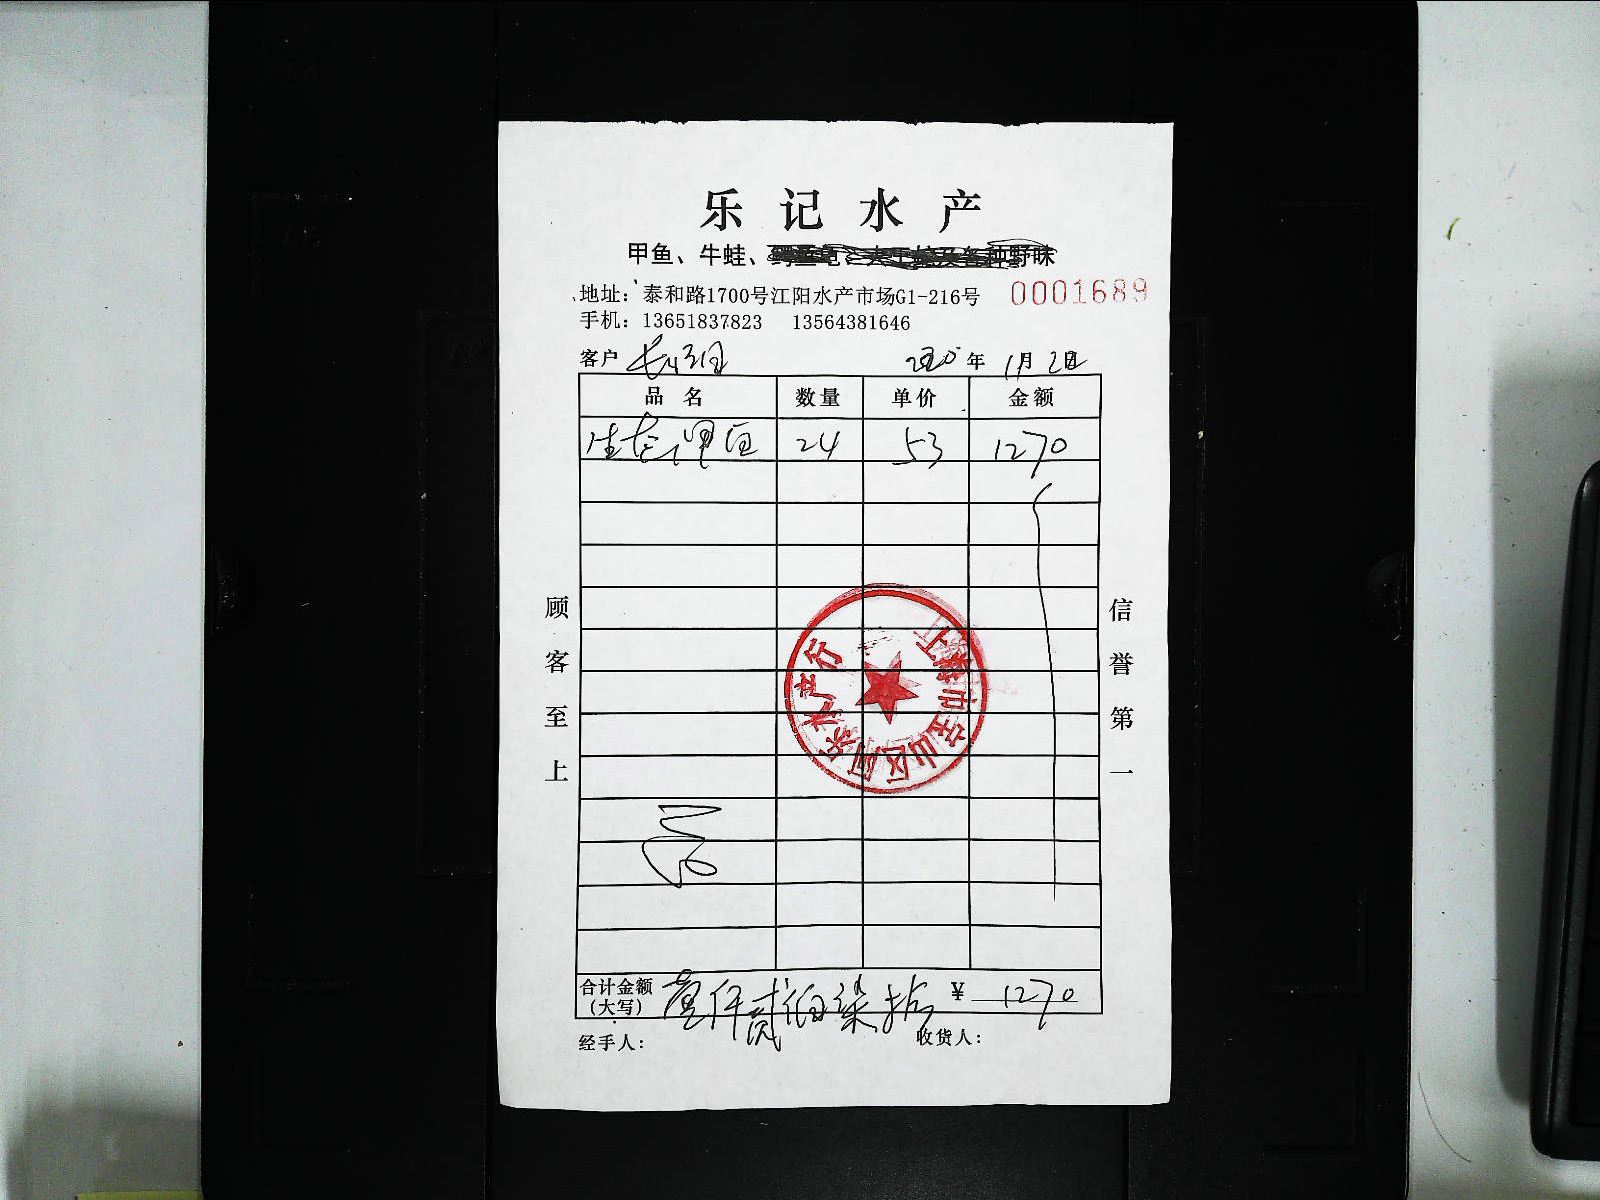 乐记水产
甲鱼、牛蛙、
野味
地址：泰和路1700号江阳水产市场G1-216号
0001689
手机：13651837823 13564381646
客户
2020年1月2日
品名 数量 单价 金额
生态甲鱼 24 53 1270
顾客至上
信誉第一
上海市宝山区阿乐水产行
合计金额（大写） 壹仟贰佰柒拾 ¥1270
经手人： 收货人：